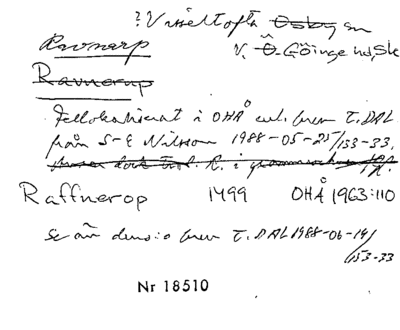 ? Visseltofta Osby sn
Ravnarp V. Ö. Göinge hd, Sk
Ravnerup
Fellokaliserat i OHÅ enl. brev t. DAL
från S-E Nilsson 1988-05-25/153-33.
Raffnerop 1499 OHÅ 1963:110
Se även dens:o brev t. DAL 1988-06-14/
153-33
Nr 18510